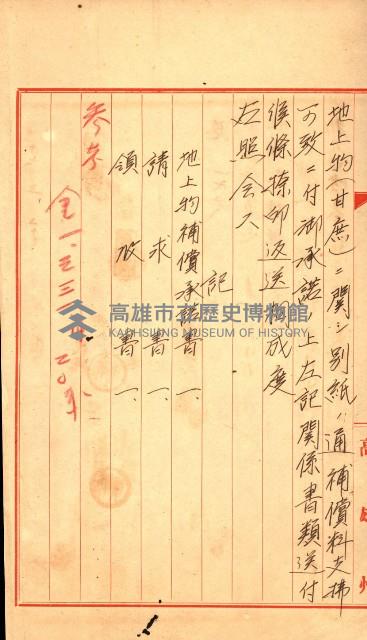 地上物(甘蔗)ニ関シ別紙ノ通補償料支拂
可致ニ付御承諾ノ上左記関係書類送付
候條捺印返送相成度
左照会ス
記
地上物補償承諾書 一、
請求書 一、
領收書 一、
参考
金一、
高雄州
高雄市立歷史博物館
KAOHSIUNG MUSEUM OF HISTORY